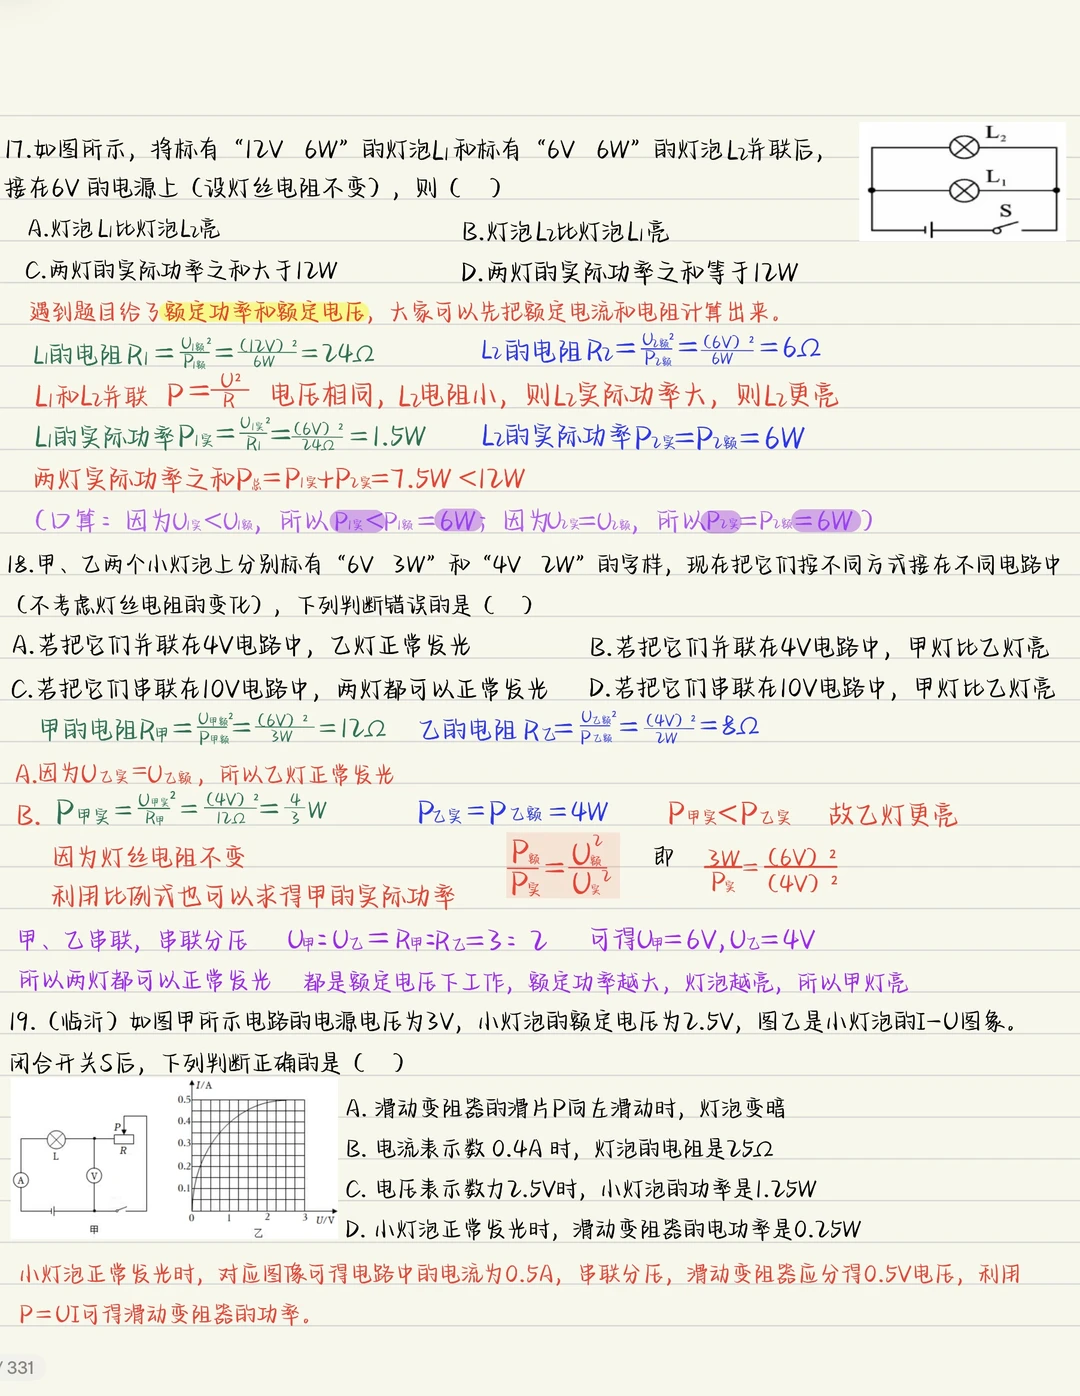 17.如图所示，将标有“12V 6W”的灯泡L₁和标有“6V 6W”的灯泡L₂并联后，
接在6V的电源上（设灯丝电阻不变），则（ ）
A.灯泡L₁比灯泡L₂亮 B.灯泡L₂比灯泡L₁亮
C.两灯的实际功率之和大于12W D.两灯的实际功率之和等于12W
L₂
L₁
S
遇到题目给了额定功率和额定电压，大家可以先把额定电流和电阻计算出来。
L₁的电阻R₁=U₁额²/P₁额=(12V)²/6W=24Ω L₂的电阻R₂=U₂额²/P₂额=(6V)²/6W=6Ω
L₁和L₂并联 P=U²/R 电压相同，L₂电阻小，则L₂实际功率大，则L₂更亮
L₁的实际功率P₁实=U₁实²/R₁=(6V)²/24Ω=1.5W L₂的实际功率P₂实=P₂额=6W
两灯实际功率之和P总=P₁实+P₂实=7.5W<12W
（口算：因为U₁实<U₁额，所以P₁实<P₁额=6W；因为U₂实=U₂额，所以P₂实=P₂额=6W）
18.甲、乙两个小灯泡上分别标有“6V 3W”和“4V 2W”的字样，现在把它们按不同方式接在不同电路中
（不考虑灯丝电阻的变化），下列判断错误的是（ ）
A.若把它们并联在4V电路中，乙灯正常发光 B.若把它们并联在4V电路中，甲灯比乙灯亮
C.若把它们串联在10V电路中，两灯都可以正常发光 D.若把它们串联在10V电路中，甲灯比乙灯亮
甲的电阻R甲=U甲额²/P甲额=(6V)²/3W=12Ω 乙的电阻R乙=U乙额²/P乙额=(4V)²/2W=8Ω
A.因为U乙实=U乙额，所以乙灯正常发光
B. P甲实=U甲实²/R甲=(4V)²/12Ω=4/3W P乙实=P乙额=4W P甲实<P乙实 故乙灯更亮
因为灯丝电阻不变 P额/P实=U额²/U实² 即 3W/P实=(6V)²/(4V)²
利用比例式也可以求得甲的实际功率
甲、乙串联，串联分压 U甲:U乙=R甲:R乙=3:2 可得U甲=6V,U乙=4V
所以两灯都可以正常发光 都是额定电压下工作，额定功率越大，灯泡越亮，所以甲灯亮
19.（临沂）如图甲所示电路的电源电压为3V，小灯泡的额定电压为2.5V，图乙是小灯泡的I-U图象。
闭合开关S后，下列判断正确的是（ ）
L
A
V
P
R
甲
I/A
0.5
0.4
0.3
0.2
0.1
0 1 2 3 U/V
乙
A. 滑动变阻器的滑片P向左滑动时，灯泡变暗
B. 电流表示数0.4A时，灯泡的电阻是25Ω
C. 电压表示数为2.5V时，小灯泡的功率是1.25W
D. 小灯泡正常发光时，滑动变阻器的电功率是0.25W
小灯泡正常发光时，对应图像可得电路中的电流为0.5A，串联分压，滑动变阻器应分得0.5V电压，利用
P=UI可得滑动变阻器的功率。
/331